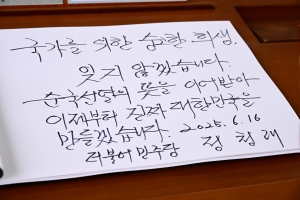 국가를 위한 숭고한 희생,
잊지 않겠습니다.
순국선열의 뜻을 이어받아
이제부터 진짜 대한민국을
만들겠습니다. 2025. 6. 16
더불어민주당 정청래